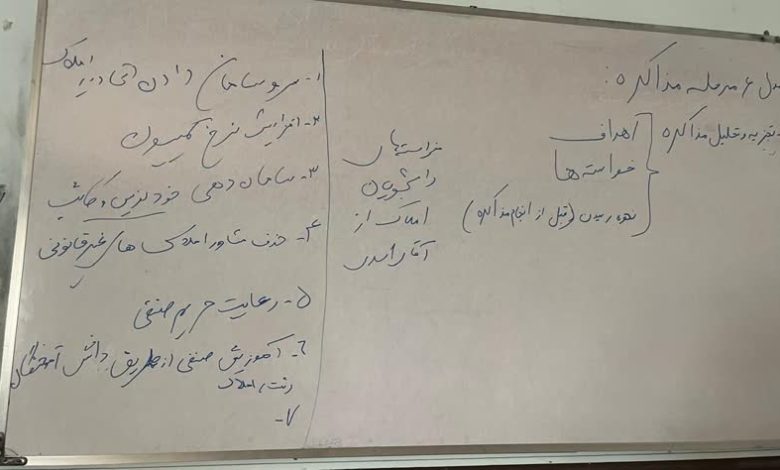 مدل ۶ مرحله مذاکره:
تجزیه و تحلیل مذاکره
اهداف
خواسته ها
نحوه رسیدن (قبل از انجام مذاکره)
خواسته های
دانشجویان
املاک از
آقای
۱- سر و سامان دادن اتحادیه املاک
۲- افزایش نرخ کمیسیون
۳- سامان دهی خودنویس و کاتب
۴- حذف مشاور املاک های غیرقانونی
۵- رعایت حریم صنفی
۶- آموزش صنفی از طریق دانش آموختگان
رشته املاک
۷-